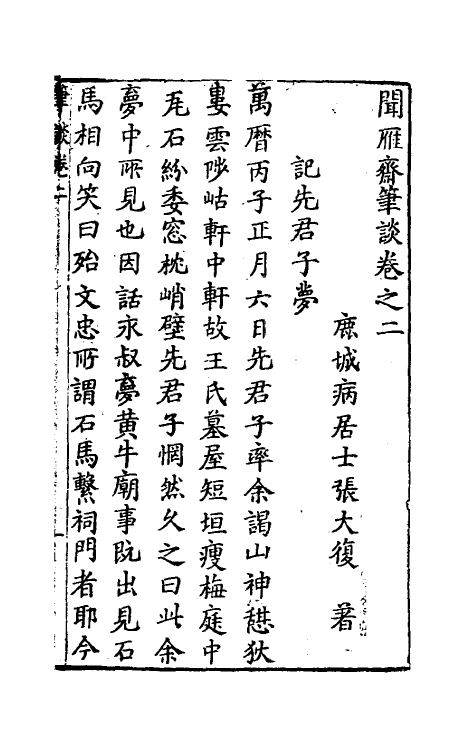 聞雁齋筆談卷之二
鹿城病居士張大復 著
記先君子夢
萬曆丙子正月六日先君子率余謁山神憇狄
婁雲陟岵軒中軒故王氏墓屋短垣瘦梅庭中
尾石紛委窓枕峭壁先君子惘然久之曰此余
夢中所見也因話永叔夢黄牛廟事既出見石
馬相向笑曰殆文忠所謂石馬繫祠門者耶今
筆談卷二